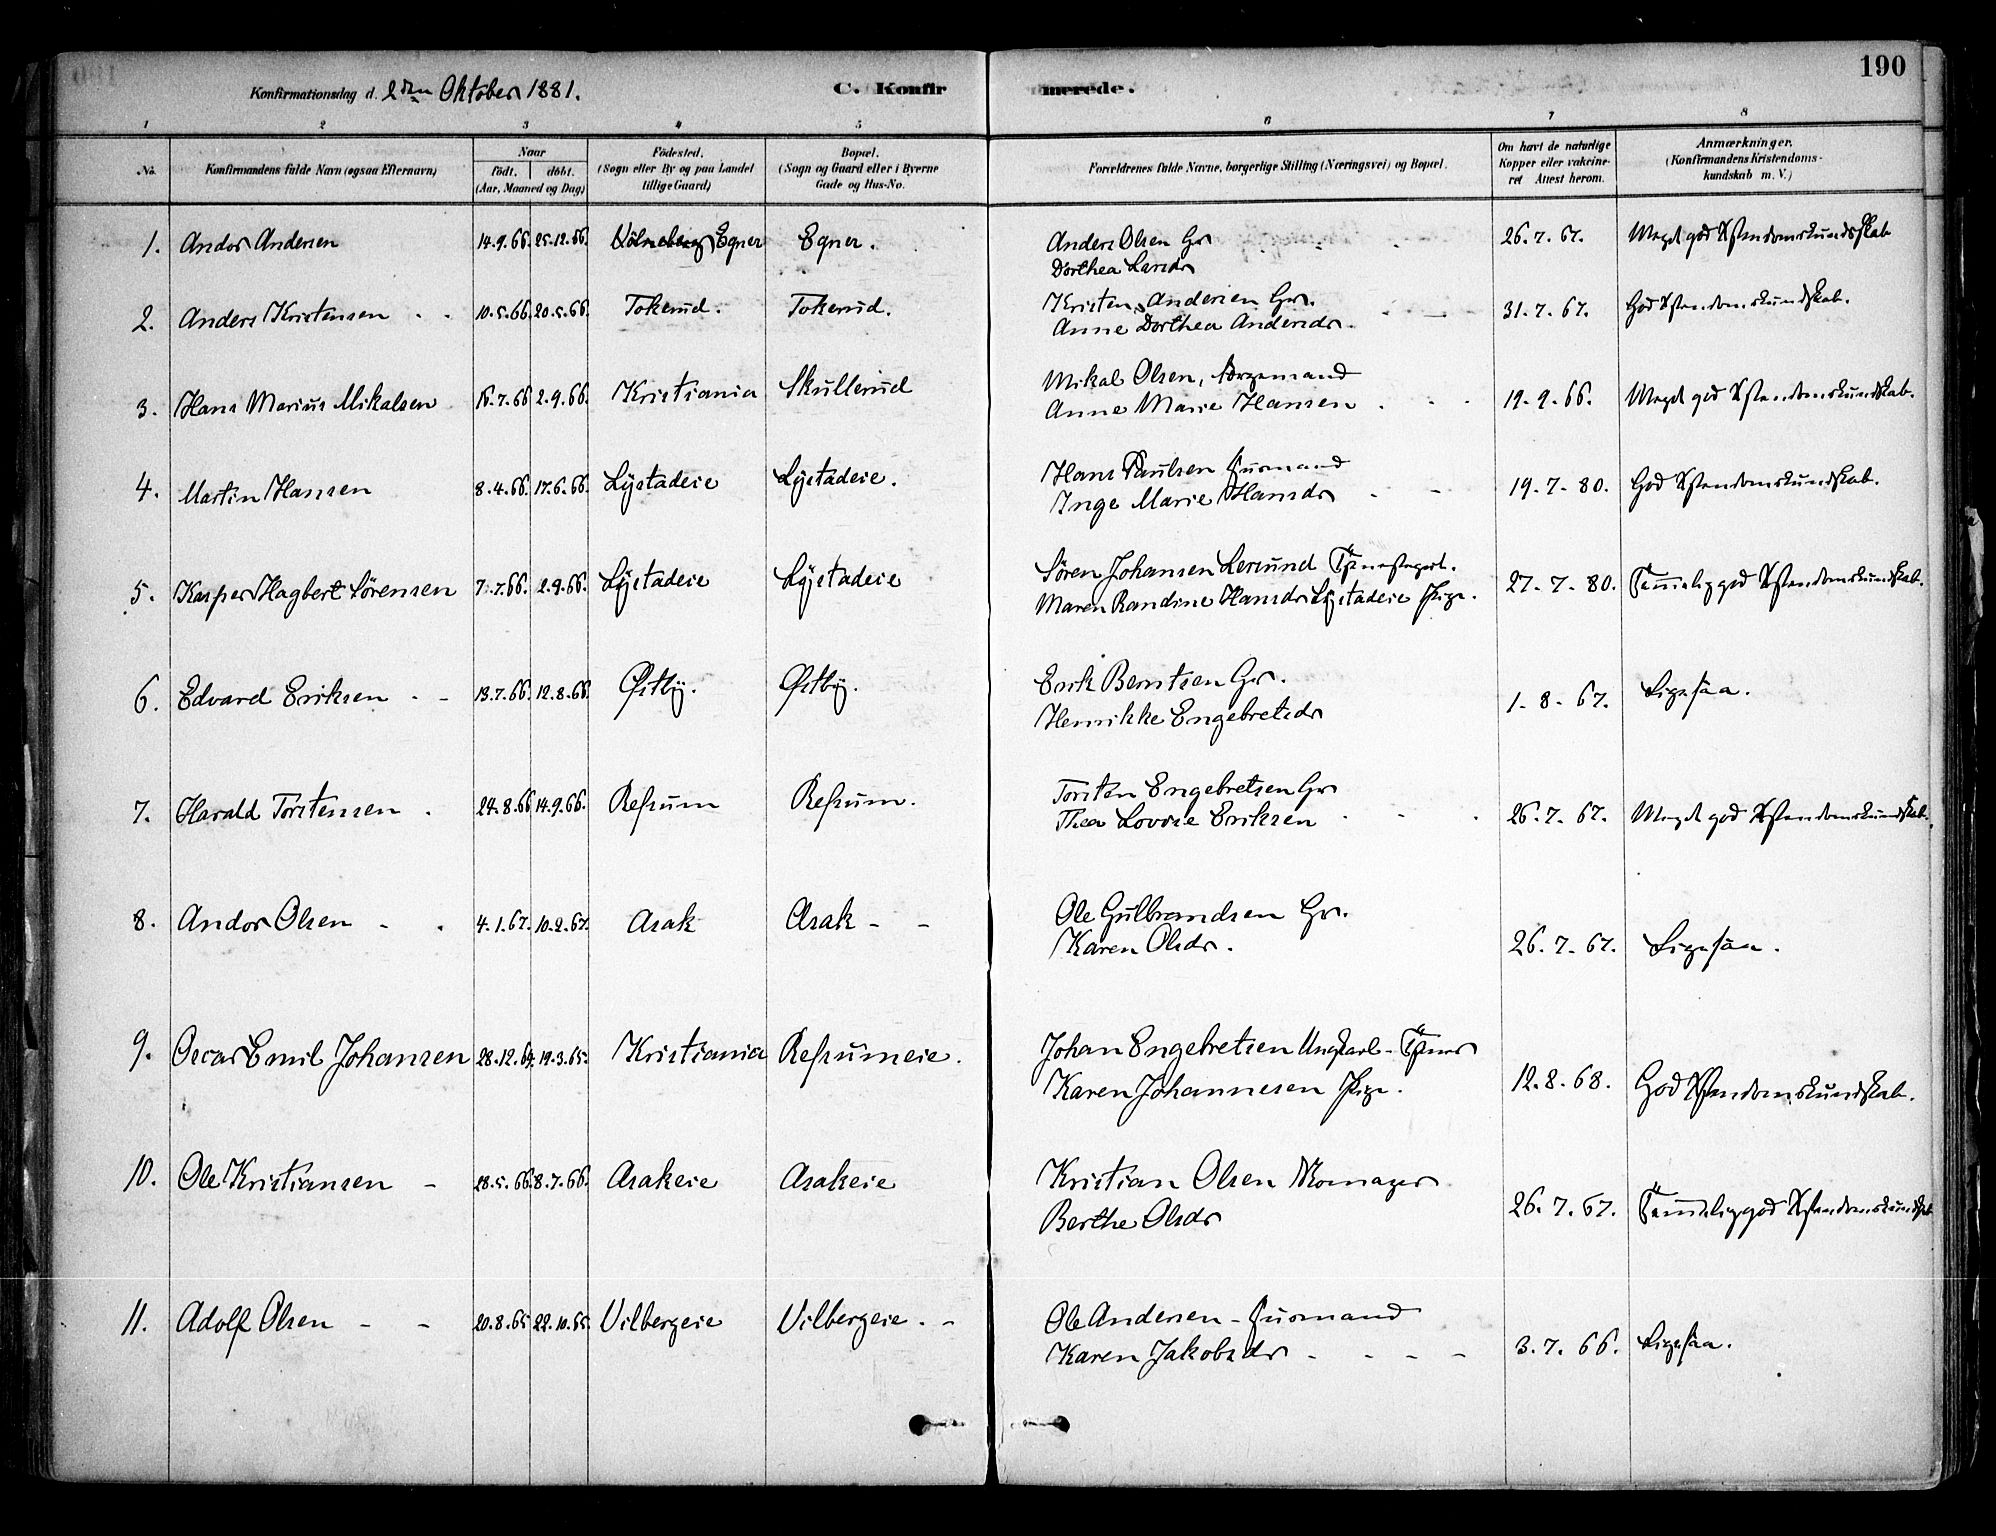 190
Konfirmationsdag d. 2den Oktober 1881.
C. Konfirmerede.
1 2 3 4 5 6 7 8
No. Konfirmandens fulde Navn (ogsaa Efternavn) Naar födt. döbt. (Aar, Maaned og Dag) Födested. (Sogn eller By og paa Landet tillige Gaard) Bopæl. (Sogn og Gaard eller i Byerne Gade og Hus-No. Forældrenes fulde Navne, borgerlige Stilling (Næringsvei) og Bopæl. Om havt de naturlige Kopper eller vakcineret Attest herom. Anmærkninger. (Konfirmandens Kristendomskundskab m. V.)
1. Andor Andersen 14.9.66. 25.12.66. Egner Egner. Anders Olsen Gr 26.7.67. Meget god Xstendomskundskab
Dorthea Larsdr
2. Anders Kristensen 10.5.66. 20.5.66. Tokerud. Tokerud. Kristen Andersen Gr. 31.7.67. God Xstendomskundskab.
Anne Dorthea Andersdr.
3. Hans Marius Mikalsen 16.7.66 2.9.66. Kristiania Skullerud Mikal Olsen, 19.9.66. Meget god Xstendomskundskab.
Anne Marie Hansen
4. Martin Hansen 8.4.66. 17.6.66. Lystadeie Lystadeie. Hans Paulsen Husmand 19.7.80. God Xstendomskundskab.
Inge Marie Hansdr
5. Kasper Hagbert Sörensen 7.7.66. 2.9.66. Lystadeie Lystadeie Sören Johansen Lersund Tjenestegut. 27.7.80. Temmelig god Xstendomskundskab.
Maren Randine Hansdr Lystadeie Pige.
6. Edvard Eriksen 13.7.66. 12.8.66. Østby. Østby. Erik Berntsen Gr. 1.8.67. Ligesaa.
Henrikke Engebretsdr
7. Harald Torstensen 24.8.66 14.9.66. Refsum Refsum. Torsten Engebretsen Gr 26.7.67. Meget god Xstendomskundskab.
Thea Lovise Eriksen
8. Andor Olsen 4.1.67. 10.2.67. Asak Asak Ole Gulbrandsen Gr. 26.7.67. Ligesaa.
Karen Olsdr.
9. Oscar Emil Johansen 28.12.64. 19.3.65. Kristiania Refsumeie. Johan Engebretsen Ungkarl - Tjener 12.8.68. God Xstendomskundskab.
Karen Johannesen Pige.
10. Ole Kristiansen 28.5.66. 8.7.66. Asakeie Asakeie Kristian Olsen 26.7.67. Temmelig god Xstendomskundskab
Berthe Olsdr
11. Adolf Olsen 20.8.65 22.10.65. Vilbergeie Vilbergeie. Ole Andersen - Husmand 3.7.66. Ligesaa.
Karen Jakobsdr